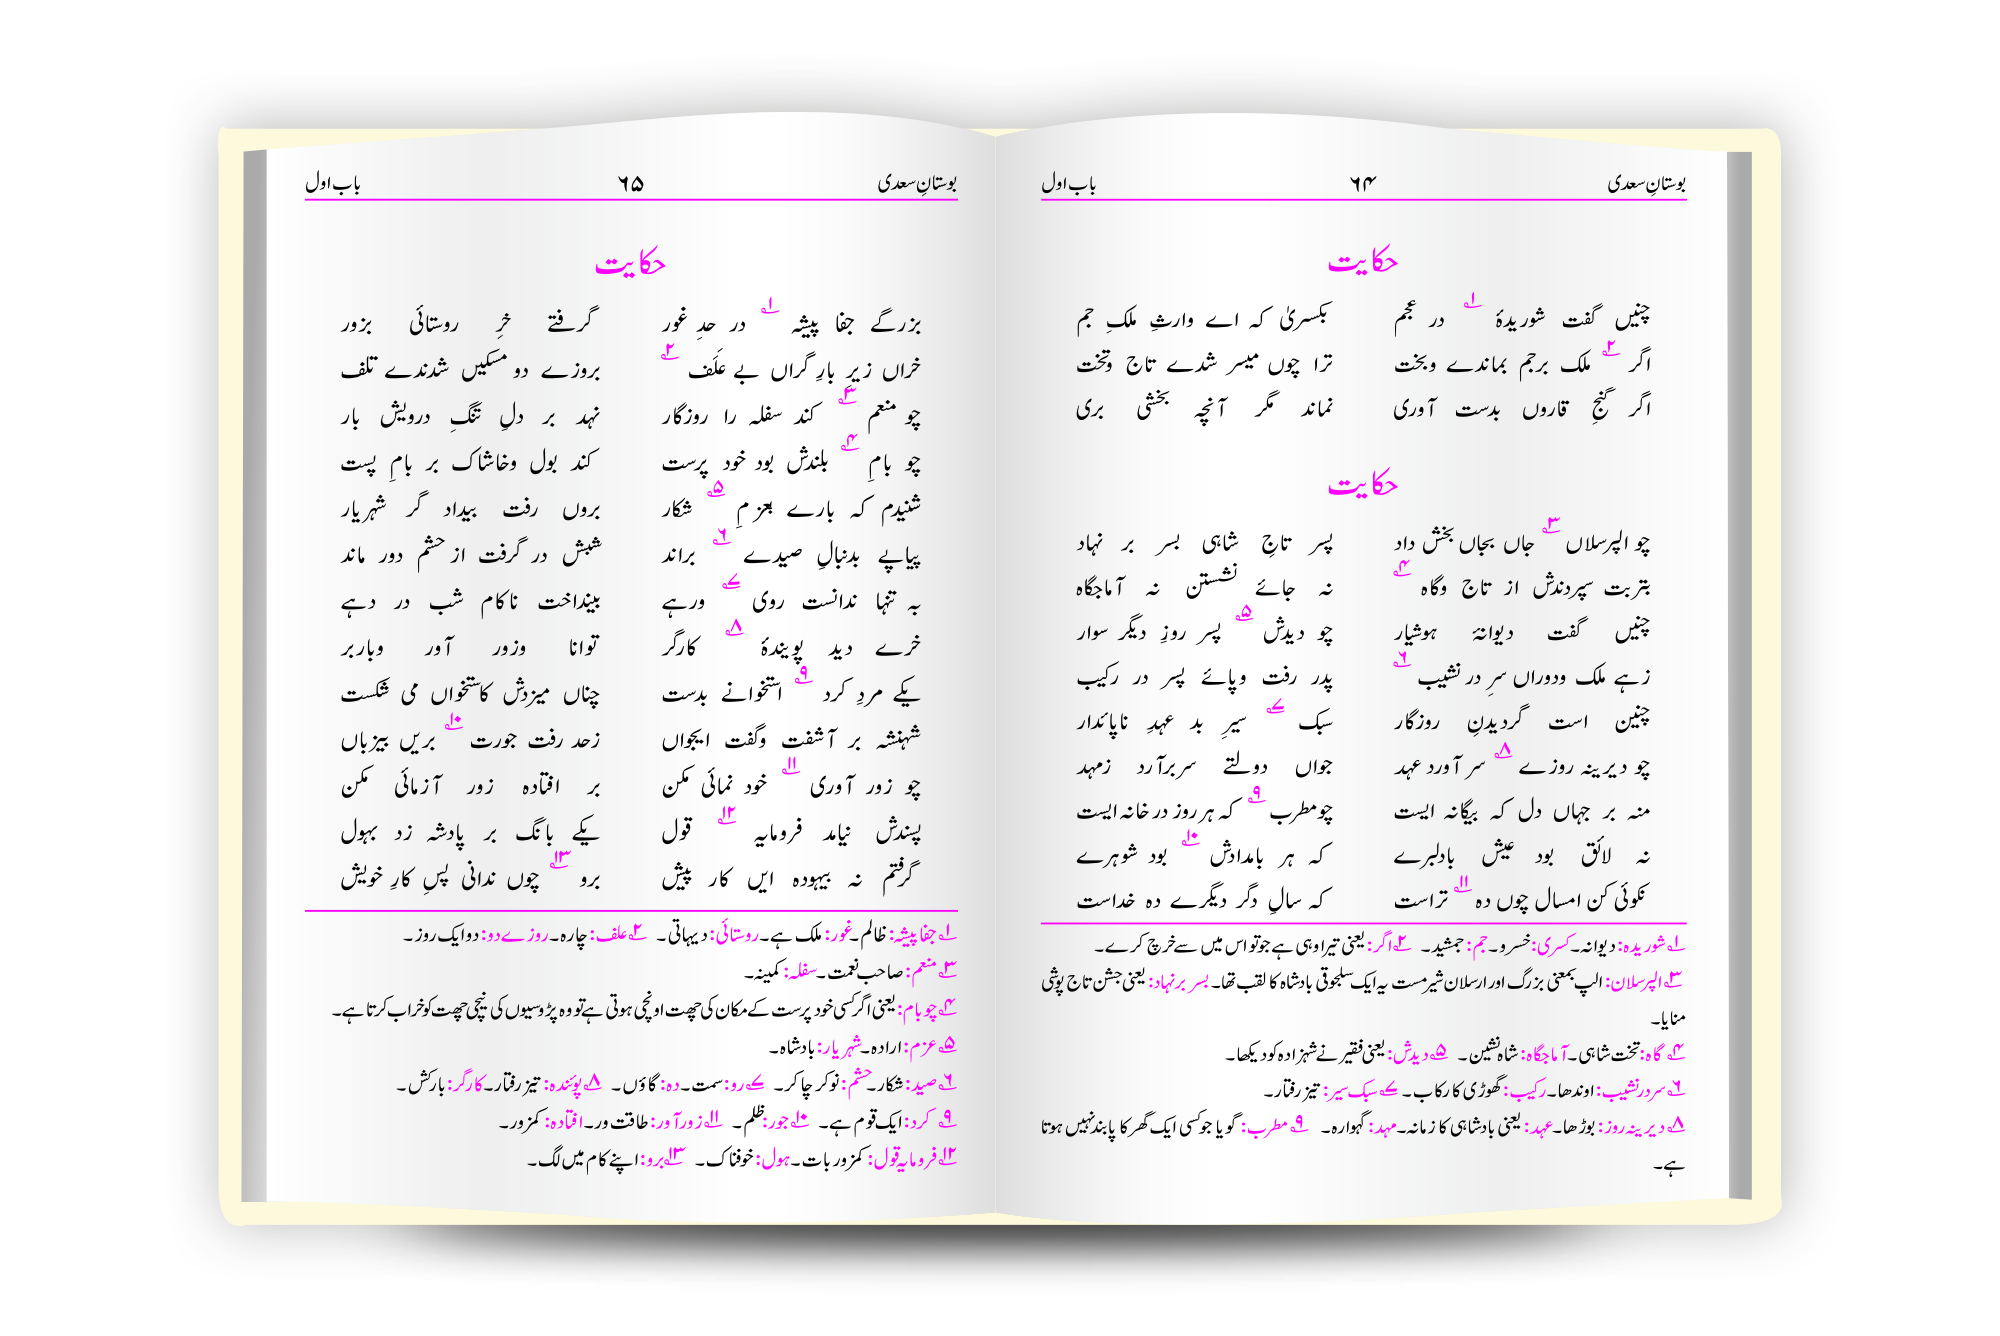 بوستانِ سعدی ۶۴ باب اول
حکایت
چنیں گفت شوریدۂ ۱ در عجم بکسریٰ کہ اے وارثِ ملکِ جم
اگر ۲ ملک برجم بماندے وبخت ترا چوں میسر شدے تاج وتخت
اگر گنجِ قاروں بدست آوری نماند مگر آنچہ بخشی بری
حکایت
چو الپرسلاں ۳ جاں بجاں بخش داد پسر تاجِ شاہی بسر بر نہاد
بتربت سپردندش از تاج وگاہ ۴ نہ جائے نشستن نہ آماجگاہ
چنیں گفت دیوانۂ ہوشیار چو دیدش ۵ پسر روزِ دیگر سوار
زہے ملک ودوراں سرِ در نشیب ۶ پدر رفت وپائے پسر در رکیب
چنین است گردیدنِ روزگار سبک ۷ سیرِ بد عہدِ ناپائدار
چو دیرینہ روزے ۸ سر آورد عہد جواں دولتے سربرآرد زمہد
منہ بر جہاں دل کہ بیگانہ ایست چومطرب ۹ کہ ہر روز در خانہ ایست
نہ لائق بود عیش بادلبرے کہ ہر بامدادش ۱۰ بود شوہرے
نکوئی کن امسال چوں دہ ۱۱ تراست کہ سالِ دگر دیگرے دہ خداست
۱ شوریدہ: دیوانہ۔ کسری: خسرو۔ جم: جمشید۔ ۲ اگر: یعنی تیرا وہی ہے جو تو اس میں سے خرچ کرے۔
۳ الپرسلان: الپ بمعنی بزرگ اور ارسلان شیر مست یہ ایک سلجوقی بادشاہ کا لقب تھا۔ بسر برنہاد: یعنی جشن تاج پوشی
منایا۔
۴ گاہ: تخت شاہی۔ آماجگاہ: شاہ نشین۔ ۵ دیدش: یعنی فقیر نے شہزادہ کو دیکھا۔
۶ سردرنشیب: اوندھا۔ رکیب: گھوڑی کا رکاب۔ ۷ سبک سیر: تیز رفتار۔
۸ دیرینہ روز: بوڑھا۔ عہد: یعنی بادشاہی کا زمانہ۔ مہد: گہوارہ۔ ۹ مطرب: گویا جو کسی ایک گھر کا پابند نہیں ہوتا
ہے۔
بوستانِ سعدی ۶۵ باب اول
حکایت
بزرگے جفا پیشہ ۱ در حدِ غور گرفتے خرِ روستائی بزور
خراں زیرِ بارِ گراں بے عَلَف ۲ بروزے دو مسکیں شدندے تلف
چو منعم ۳ کند سفلہ را روزگار نہد بر دلِ تنگِ درویش بار
چو بامِ ۴ بلندش بود خود پرست کند بول وخاشاک بر بامِ پست
شنیدم کہ بارے بعزمِ ۵ شکار بروں رفت بیداد گر شہریار
پیاپے بدنبالِ صیدے ۶ براند شبش در گرفت از حشم دور ماند
بہ تنہا ندانست روی ۷ ورہے بینداخت ناکام شب در دہے
خرے دید پویندۂ ۸ کارگر توانا وزور آور وباربر
یکے مردِ کرد ۹ استخوانے بدست چناں میزدش کاستخواں می شکست
شہنشہ بر آشفت وگفت ایجواں زحد رفت جورت ۱۰ بریں بیزباں
چو زور آوری ۱۱ خود نمائی مکن بر افتادہ زور آزمائی مکن
پسندش نیامد فرومایہ ۱۲ قول یکے بانگ بر پادشہ زد بہول
گرفتم نہ بیہودہ ایں کار پیش برو ۱۳ چوں ندانی پسِ کارِ خویش
۱ جفا پیشہ: ظالم۔ غور: ملک ہے۔ روستائی: دیہاتی۔ ۲ علف: چارہ۔ روزے دو: دو ایک روز۔
۳ منعم: صاحب نعمت۔ سفلہ: کمینہ۔
۴ چوبام: یعنی اگر کسی خود پرست کے مکان کی چھت اونچی ہوتی ہے تو وہ پڑوسیوں کی نیچی چھت کو خراب کرتا ہے۔
۵ عزم: ارادہ۔ شہریار: بادشاہ۔
۶ صید: شکار۔ حشم: نوکر چاکر۔ ۷ رو: سمت۔ دہ: گاؤں۔ ۸ پوئندہ: تیز رفتار۔ کارگر: بارکش۔
۹ کرد: ایک قوم ہے۔ ۱۰ جور: ظلم۔ ۱۱ زور آور: طاقت ور۔ افتادہ: کمزور۔
۱۲ فرومایہ قول: کمزور بات۔ ہول: خوفناک۔ ۱۳ برو: اپنے کام میں لگ۔